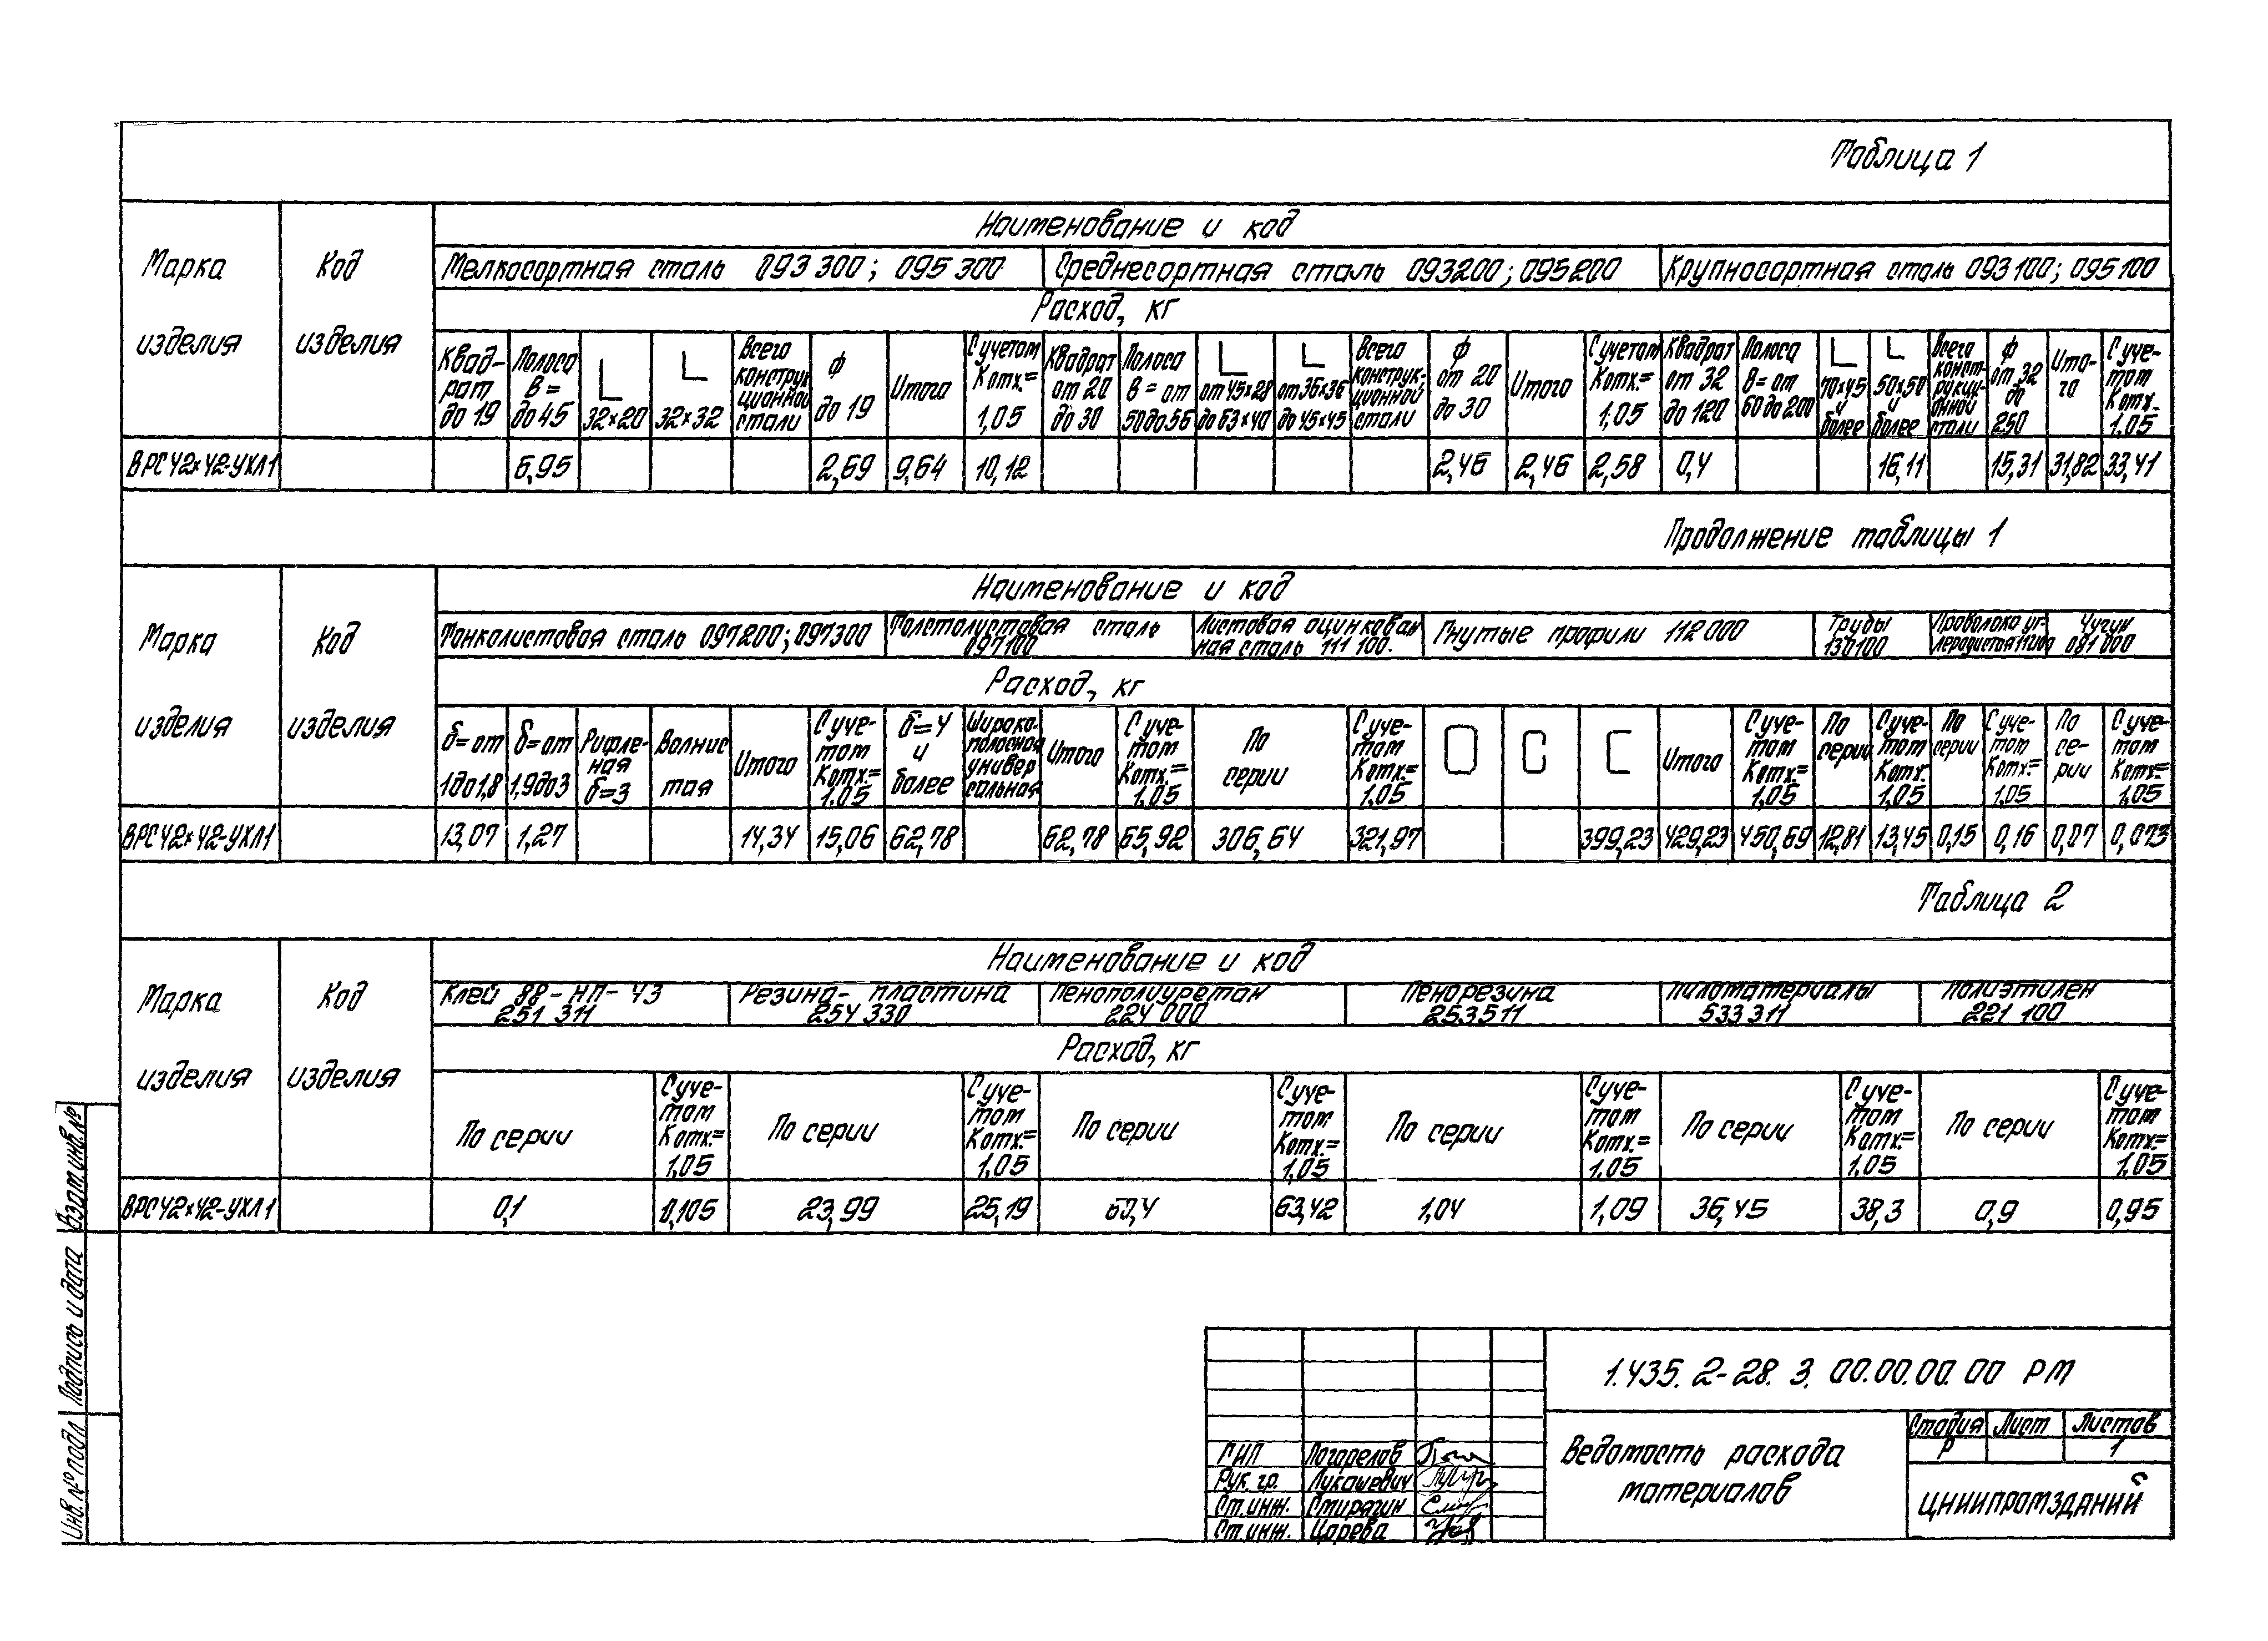 Таблица 1
Марка изделия
Код изделия
Наименование и код
Мелкосортная сталь 093 300; 095 300
Среднесортная сталь 093200; 095200
Крупносортная сталь 093 100; 095 100
Расход, кг
Квад-
рат
до 19
Полоса
В =
до 45
32×20
32×32
Всего
конструк
ционной
стали
ф
до 19
Итого
С учетом
Котх.=
1,05
Квадрат
от 20
до 30
Полоса
В = от
50 до 56
от 45×28
до 63×40
от 36×36
до 45×45
Всего
конструк-
ционной
стали
ф
от 20
до 30
Итого
С учетом
Котх.=
1,05
Квадрат
от 32
до 120
Полоса
В= от
60 до 200
70×45
и
более
50×50
и
более
Всего
конст-
рукци-
онной
стали
ф
от 32
до
250
Ито-
го
С уче-
том
Котх.
1,05
ВРС 42×42-УХЛ1 6,95 2,69 9,64 10,12 2,46 2,46 2,58 0,4 16,11 15,31 31,82 33,41
Продолжение таблицы 1
Марка изделия
Код изделия
Наименование и код
Тонколистовая сталь 097200; 097300
Толстолистовая сталь
097100
Листовая оцинкован
ная сталь 111 100.
Гнутые профили 112 000
Трубы
130100
Проволока уг-
леродистая
Чугун
081 000
Расход, кг
δ= от
1 до 1,8
δ= от
1,9 до 3
Рифле-
ная
δ=3
Волнис
тая
Итого
С уче-
том
Котх.=
1.05
δ=4
и
более
Широко-
полосная
универ
сальная
Итого
С уче-
том
Котх.=
1.05
По
серии
С уче-
том
Котх.=
1,05
Итого
С уче-
том
Котх.=
1,05
По
серии
С уче-
том
Котх.
1,05
По
серии
С уче-
том
Котх.=
1,05
По
се-
рии
С уче-
том
Котх.=
1,05
ВРС 42×42-УХЛ1 13,07 1,27 14,34 15,06 62,78 62,78 65,92 306,64 321,97 399,23 429,23 450,69 12,81 13,45 0,15 0,16 0,07 0,073
Таблица 2
Марка изделия
Код изделия
Наименование и код
Клей 88-НП-43
251 311
Резина- пластина
254 330
Пенополиуретан
224 000
Пенорезина
253511
Пиломатериалы
533 311
Полиэтилен
221 100
Расход, кг
По серии
С уче-
том
Котх.=
1,05
По серии
С уче-
том
Котх.=
1,05
По серии
С уче-
том
Котх.=
1,05
По серии
С уче-
том
Котх.=
1,05
По серии
С уче-
том
Котх.=
1,05
По серии
С уче-
том
Котх.=
1,05
ВРС 42×42-УХЛ1 0,1 0,105 23,99 25,19 60,4 63,42 1,04 1,09 36,45 38,3 0,9 0,95
1.435. 2-28. 3. 00.00.00.00 РМ
Ведомость расхода
материалов
Стадия Лист Листов
Р 1
ЦНИИПРОМЗДАНИЙ
ГИП Погорелов
Рук. гр. Лукашевич
Ст.инж. Стирягин
Ст.инж. Царева
Инв. № подл Подпись и дата Взам инв. №